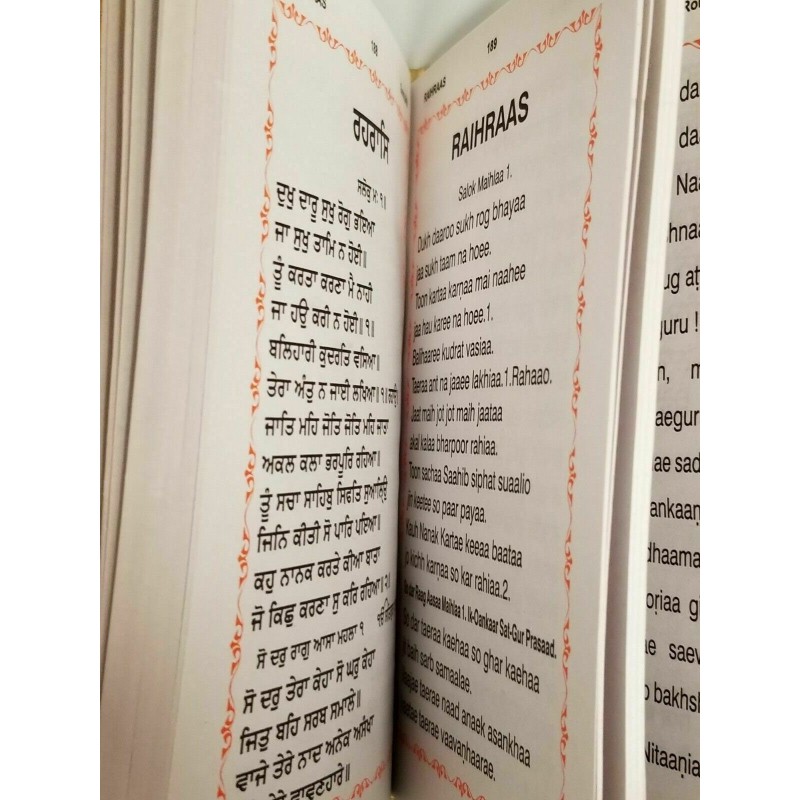 188
ਰਹਰਾਸਿ
ਸਲੋਕੁ ਮ: ੧॥
ਦੁਖੁ ਦਾਰੂ ਸੁਖੁ ਰੋਗੁ ਭਇਆ
ਜਾ ਸੁਖੁ ਤਾਮਿ ਨ ਹੋਈ॥
ਤੂੰ ਕਰਤਾ ਕਰਣਾ ਮੈ ਨਾਹੀ
ਜਾ ਹਉ ਕਰੀ ਨ ਹੋਈ॥੧॥
ਬਲਿਹਾਰੀ ਕੁਦਰਤਿ ਵਸਿਆ
ਤੇਰਾ ਅੰਤੁ ਨ ਜਾਈ ਲਖਿਆ॥੧॥
ਜਾਤਿ ਮਹਿ ਜੋਤਿ ਜੋਤਿ ਮਹਿ ਜਾਤਾ
ਅਕਲ ਕਲਾ ਭਰਪੂਰਿ ਰਹਿਆ॥
ਤੂੰ ਸਚਾ ਸਾਹਿਬੁ ਸਿਫਤਿ ਸੁਆਲਿ੍ਉ
ਜਿਨਿ ਕੀਤੀ ਸੋ ਪਾਰਿ ਪਇਆ॥
ਕਹੁ ਨਾਨਕ ਕਰਤੇ ਕੀਆ ਬਾਤਾ
ਜੋ ਕਿਛੁ ਕਰਣਾ ਸੁ ਕਰਿ ਰਹਿਆ॥੨॥
ਸੋ ਦਰੁ ਰਾਗੁ ਆਸਾ ਮਹਲਾ ੧
ਸੋ ਦਰੁ ਤੇਰਾ ਕੇਹਾ ਸੋ ਘਰੁ ਕੇਹਾ
ਜਿਤੁ ਬਹਿ ਸਰਬ ਸਮਾਲੇ॥
ਵਾਜੇ ਤੇਰੇ ਨਾਦ ਅਨੇਕ ਅਸੰਖਾ
ਕੇਤੇ ਤੇਰੇ ਵਾਵਣਹਾਰੇ॥
189
RAIHRAAS
RAIHRAAS
Salok Maihlaa 1.
Dukh daaroo sukh rog bhayaa
jaa sukh taam na hoee.
Toon kartaa karṇaa mai naahee
jaa hau karee na hoee.1.
Balihaaree kudrat vasiaa.
Taeraa ant na jaaee lakhiaa.1.Rahaao.
Jaat maih jot jot maih jaataa
akal kalaa bharpoor rahiaa.
Toon sachaa Saahib siphat suaalio
jin keetee so paar payaa.
Kauh Nanak Kartae keeaa baataa
jo kichh karṇaa so kar rahiaa.2.
So dar Raag Aasaa Maihlaa 1. Ik-Oankaar Sat-Gur Prasaad.
So dar taeraa kaehaa so ghar kaehaa
jit baih sarb samaalae.
Vaajae taerae naad anaek asankhaa
kaetae taerae vaavaṇhaarae.